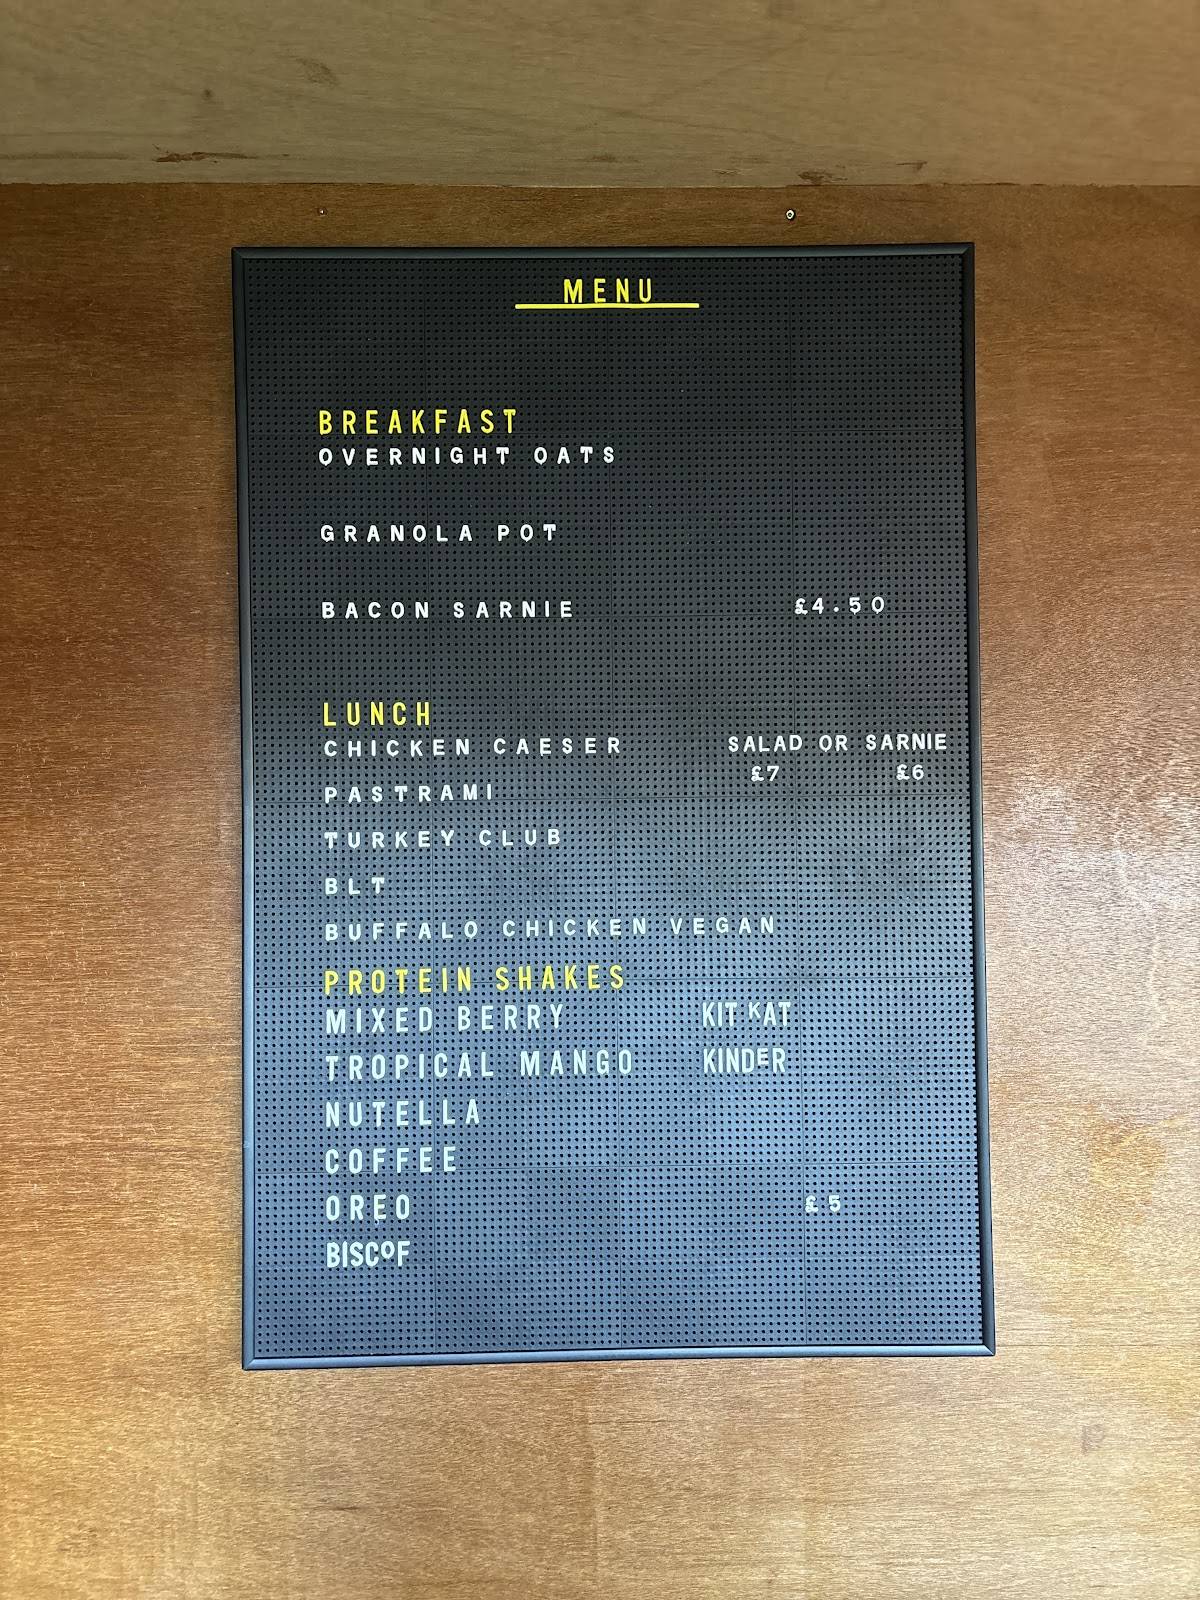 MENU
BREAKFAST
OVERNIGHT OATS
GRANOLA POT
BACON SARNIE £4.50
LUNCH
CHICKEN CAESER SALAD OR SARNIE
£7 £6
PASTRAMI
TURKEY CLUB
BLT
BUFFALO CHICKEN VEGAN
PROTEIN SHAKES
MIXED BERRY KIT KAT
TROPICAL MANGO KINDER
NUTELLA
COFFEE
OREO £5
BISCOF